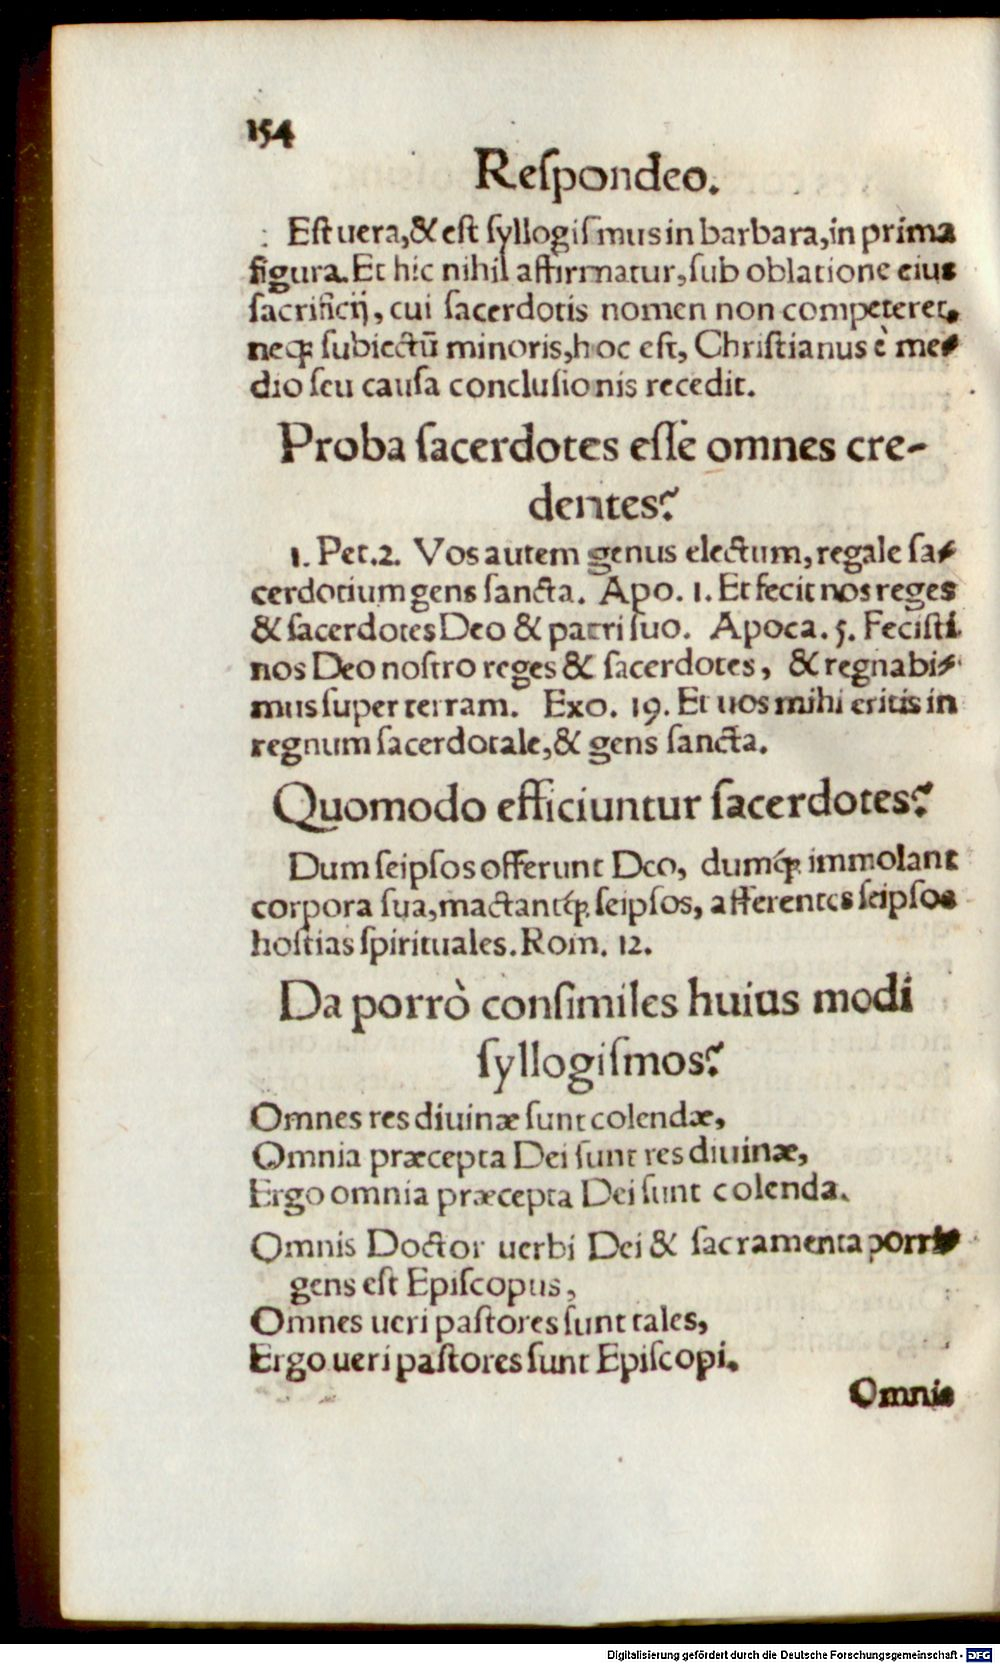 154
Reſpondeo.
Eſt uera, & eſt ſyllogiſmus in barbara, in prima
figura. Et hic nihil affirmatur, ſub oblatione eius
ſacrificij, cui ſacerdotis nomen non competeret.
neqꝫ ſubiectū minoris, hoc eſt, Chriſtianus è me-
dio ſeu cauſa concluſionis recedit.
Proba ſacerdotes eſſe omnes cre-
dentes?
1. Pet. 2. Vos autem genus electum, regale ſa-
cerdotium gens ſancta. Apo. 1. Et fecit nos reges
& ſacerdotes Deo & patri ſuo. Apoca. 5. Feciſti
nos Deo noſtro reges & ſacerdotes, & regnabi-
mus ſuper terram. Exo. 19. Et uos mihi eritis in
regnum ſacerdotale, & gens ſancta.
Quomodo efficiuntur ſacerdotes?
Dum ſeipſos offerunt Deo, dumq́ꝫ immolant
corpora ſua, mactantq́ꝫ ſeipſos, afferentes ſeipſos
hoſtias ſpirituales. Rom. 12.
Da porrò conſimiles huius modi
ſyllogiſmos?
Omnes res diuinæ ſunt colendæ,
Omnia præcepta Dei ſunt res diuinæ,
Ergo omnia præcepta Dei ſunt colenda.
Omnis Doctor uerbi Dei & ſacramenta porri-
gens eſt Epiſcopus,
Omnes ueri paſtores ſunt tales,
Ergo ueri paſtores ſunt Epiſcopi.
Omnis
Digitalisierung gefördert durch die Deutsche Forschungsgemeinschaft - DFG